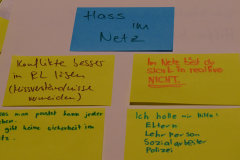 Hass
im
Netz
Konflikte besser
in RL lösen
(Missverständnisse
vermeiden)
Im Netz bist du
stark in
NICHT.
was man postet kann jeder
gibt keine Sicherheit im
Ich hole mir Hilfe:
Eltern
Lehrperson
Sozialarbeiter
Polizei